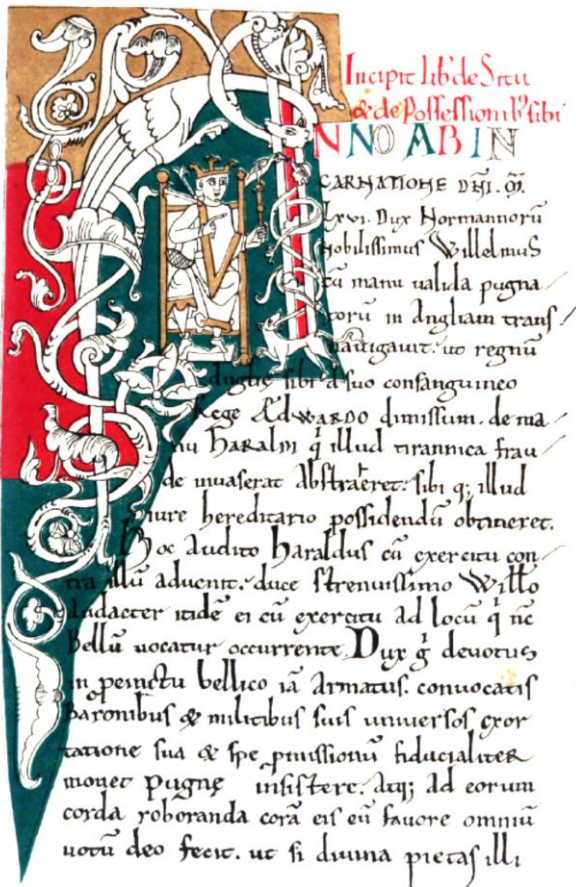 Incipit lib' de Situ
& de Possessionib' sibi
ANNO AB IN
CARNATIONE DÑI. M̄.
lxvi. Dux Normannorū
nobilissimus Willelmus
cū manu ualida pugna
torū in Angliam trans
nauigauit. ut regnū
angliȩ sibi a suo consanguineo
Rege Ædwardo dimissum. de ma
nu Haraldi q' illud tirannica frau
de inuaserat abstraeret. sibi q; illud
iure hereditario possidendū obtineret.
Hoc audito haraldus cū exercitu con
tra illū aduenit. duce strenuissimo Willo
audacter itidē ei cū exercitu ad locū q' nc̄
Bellū uocatur occurrente. Dux g' deuotus
in p̄cinctu bellico iā armatus. conuocatis
Baronibus & militibus suis uniuersos exor
tatione sua & spe p̄missionū fiducialiter
mouet pugnȩ insistere. atq; ad eorum
corda roboranda corā eis eū fauore omniū
uotū deo fecit. ut si diuina pietas illi